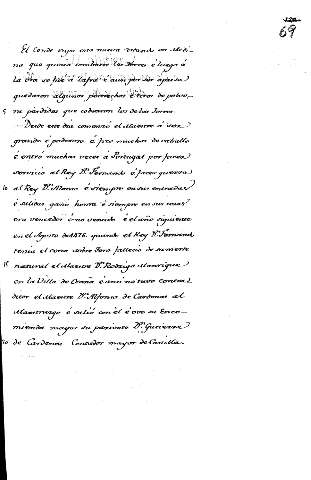 69
El Conde supo esta nueva estando en Medi-
na que queria combatir las torres é luego á
la ora se fué á Zafra é aun por ser apriesa
quedaron algunos pertrechos é tiros de polvo-
5 ra perdidas que cobraron los de las Torres
Desde este dia comenzó el Maestre á ser
grande é poderoso é fizo mucha de caballo
é entró muchas veces á Portugal por facer
servicio al Rey Dn. Fernando é facer guerra
10 al Rey Dn. Alonso é siempre en sus entradas
é salidas ganó honra é siempre en sus cosas
era vencedor é no vencido é el año siguiente
en el Agosto de 1476 quando el Rey Dn. Fernando
tenia el cerco sobre Toro falleció de su muerte
15 natural el Maestre Dn. Rodrigo Manrique
en la Villa de Ocaña é ansi no tuvo contra-
dictor el Maestre Dn. Alfonso de Cardenas al
Maestrazgo é salió con él é dió su Enco-
mienda mayor su pariente Dn. Gutierre
20 de Cardenas Contador mayor de Castilla.